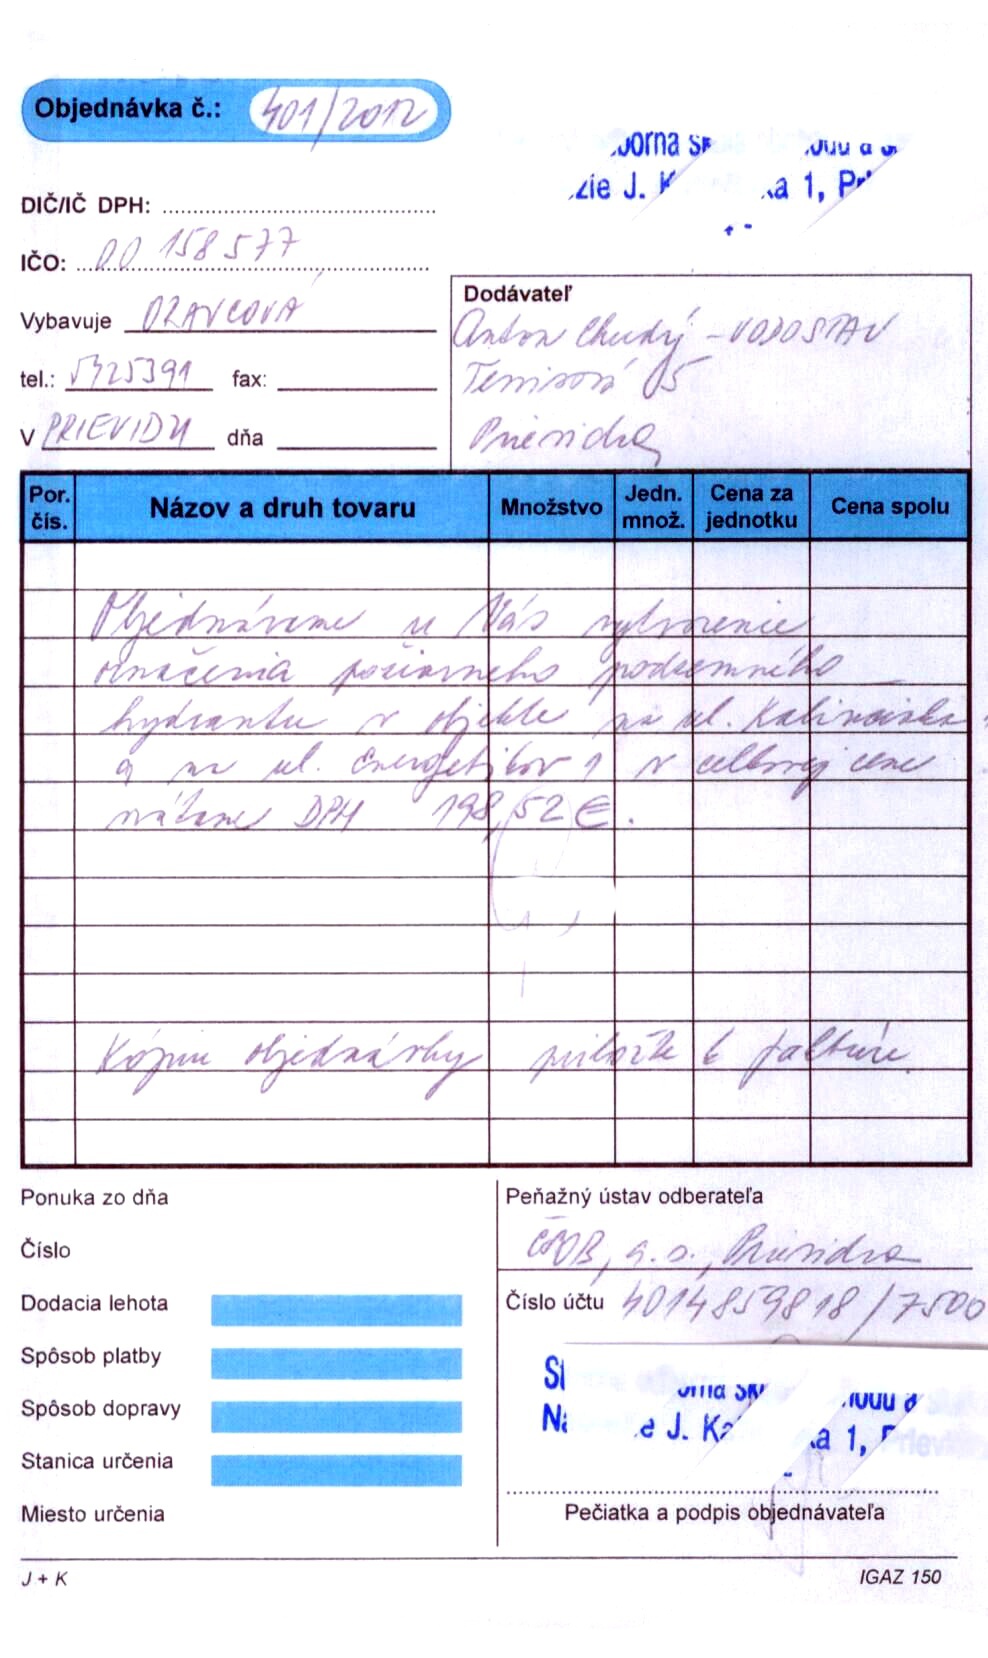 Objednávka č.: 401/2012
DIČ/IČ DPH:
IČO: 00 158577
Vybavuje ORAVCOVÁ
tel.: 5425391 fax:
V PRIEVIDZI dňa
zie J. K ka 1, Pr
Dodávateľ
Anton Chudý - VODOSTAV
Tenisová 5
Prievidza
Por. čís. Názov a druh tovaru Množstvo Jedn. množ. Cena za jednotku Cena spolu
Objednávame u Vás vytvorenie
označenia požiarneho podzemného
hydrantu v objekte na ul. Kalinčiaka
a na ul. Energetikov 1 v celkovej cene
vrátane DPH 198,52 €.
Kópiu objednávky priložte k faktúre.
Ponuka zo dňa
Číslo
Dodacia lehota
Spôsob platby
Spôsob dopravy
Stanica určenia
Miesto určenia
Peňažný ústav odberateľa
ČSOB, a.s., Prievidza
Číslo účtu 4014859818/7500
J. Ka ka 1,
Pečiatka a podpis objednávateľa
J + K
IGAZ 150